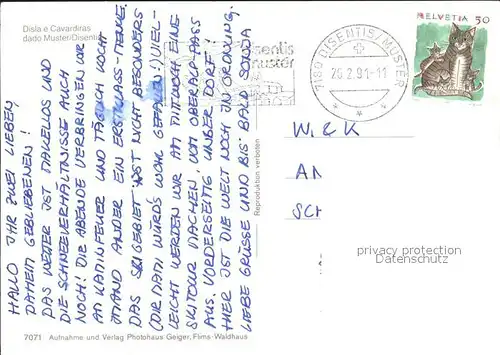 Disla e Cavardiras
dado Mustér/Disentis
HALLO IHR ZWEI LIEBEN,
DAHEIM GEBLIEBENEN!
DAS WETTER IST MAKELLOS UND
DIE SCHNEEVERHÄLTNISSE AUCH
NOCH! DIE ABENDE VERBRINGEN WIR
AM KAMINFEUER UND TÄGLICH KOCHT
JEMAND ANDER EIN ERSTKLASS-MENUE.
DAS SKIGEBIET IST NICHT BESONDERS
(DIR DADI WÜRD'S WOHL GEFALLEN!) VIEL-
LEICHT WERDEN WIR AM MITTWOCH EINE
SKITOUR MACHEN, VOM OBERALPPASS
AUS. VORDERSEITIG UNSER DORF,
HIER IST DIE WELT NOCH IN ORDNUNG.
LIEBE GRÜSSE UND BIS BALD SONJA
Disentis
muster
7180 DISENTIS/MUSTER
26.2.91-11
HELVETIA 50
W. & K
AM
SCH
privacy protection
Datenschutz
Reproduktion verboten
7071 Aufnahme und Verlag Photohaus Geiger, Flims-Waldhaus